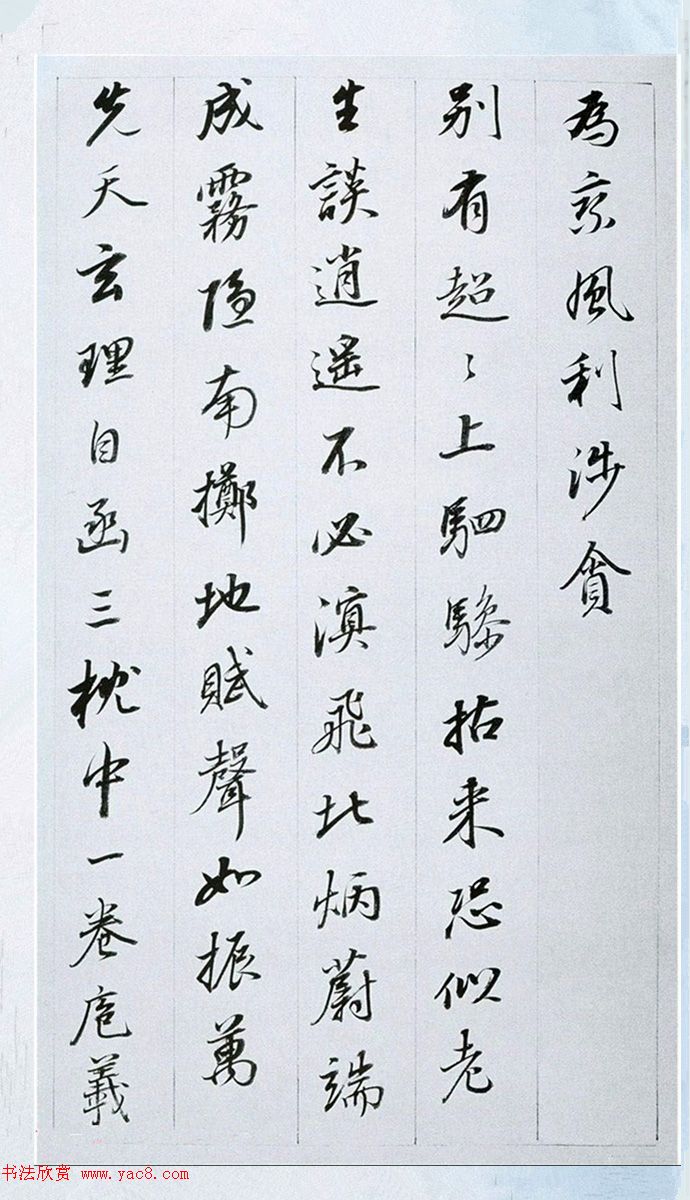 為風利涉貪
別有超〻上駟驂拈来恐似老
生談逍遥不必溟飛北炳蔚端
成霧隱南擲地賦聲如振萬
先天玄理自函三枕中一卷庖羲
书法欣赏 www.yac8.com